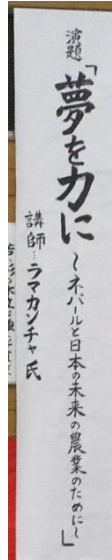 演題「夢を力に
～ネパールと日本の未来の農業のために～」
講師…ラマカンチャ氏